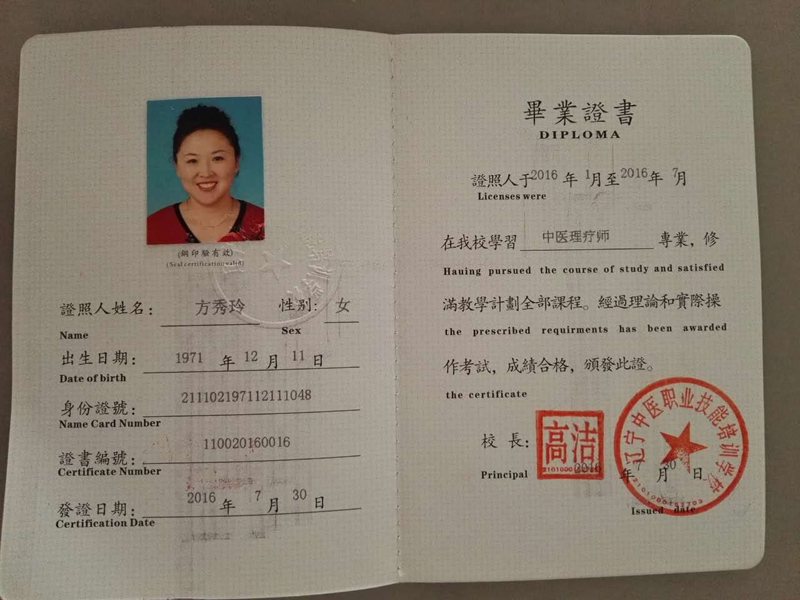 (鋼印驗有效)
(Seal certification valid)
證照人姓名: 方秀玲 性别: 女
Name Sex
出生日期: 1971 年 12 月 11 日
Date of birth
身份證號: 211102197112111048
Name Card Number
證書編號: 110020160016
Certificate Number
發證日期: 2016 年 7 月 30 日
Certification Date
畢業證書
DIPLOMA
證照人于2016 年 1月至2016年 7月
Licenses were
在我校學習 中医理疗师 專業, 修
Hauing pursued the course of study and satisfied
滿教學計劃全部課程。經過理論和實際操
the prescribed requirments has been awarded
作考試, 成績合格, 頒發此證。
the certificate
校長: 高洁
Principal
辽宁中医职业技能培训学校
2016 年 7 月 30 日
Issued date